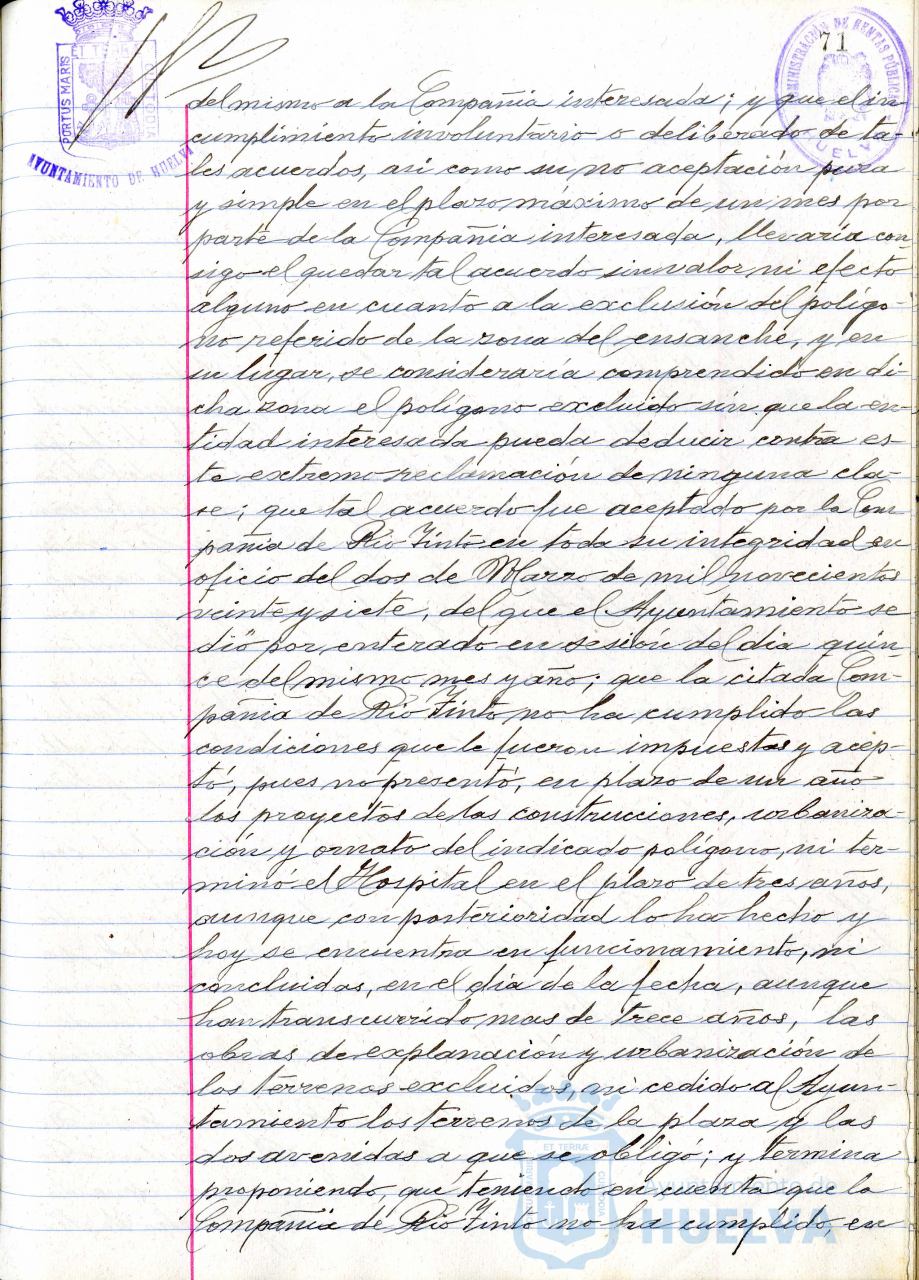 71
PORTUS MARIS ET TERRÆ CUSTODIA
AYUNTAMIENTO DE HUELVA
ADMINISTRACIÓN DE RENTAS PÚBLICAS
HUELVA
del mismo a la Compañia interesada; y que el in-
cumplimiento involuntario o deliberado de ta-
les acuerdos, asi como su no aceptación pura
y simple en el plazo máximo de un mes por
parte de la Compañia interesada, llevaría con-
sigo el quedar tal acuerdo sin valor ni efecto
alguno en cuanto a la exclusión del polígo-
no referido de la zona del ensanche, y en
su lugar, se consideraría comprendido en di
cha zona el polígono excluido sin que la en-
tidad interesada pueda deducir contra es-
te extremo reclamación de ninguna cla-
se; que tal acuerdo fue aceptado por la Com
pañia de Rio Tinto en toda su integridad en
oficio del dos de Marzo de mil novecientos
veinte y siete, del que el Ayuntamiento se
dió por enterado en sesión del dia quin-
ce del mismo mes y año; que la citada Com-
pañia de Rio Tinto no ha cumplido las
condiciones que le fueron impuestas y acep-
tó, pues no presentó, en plazo de un año
los proyectos de las construcciones, urbaniza-
ción y ornato del indicado polígono, ni ter-
minó el Hospital en el plazo de tres años,
aunque con posterioridad lo ha hecho y
hoy se encuentra en funcionamiento, ni
concluidas, en el día de la fecha, aunque
han transcurrido mas de trece años, las
obras de explanación y urbanización de
los terrenos excluidos, ni cedido al Ayun-
tamiento los terrenos de la plaza y las
dos avenidas a que se obligó; y termina
proponiendo, que teniendo en cuenta que la
Compañia de Rio Tinto no ha cumplido, en
Ayuntamiento de
HUELVA